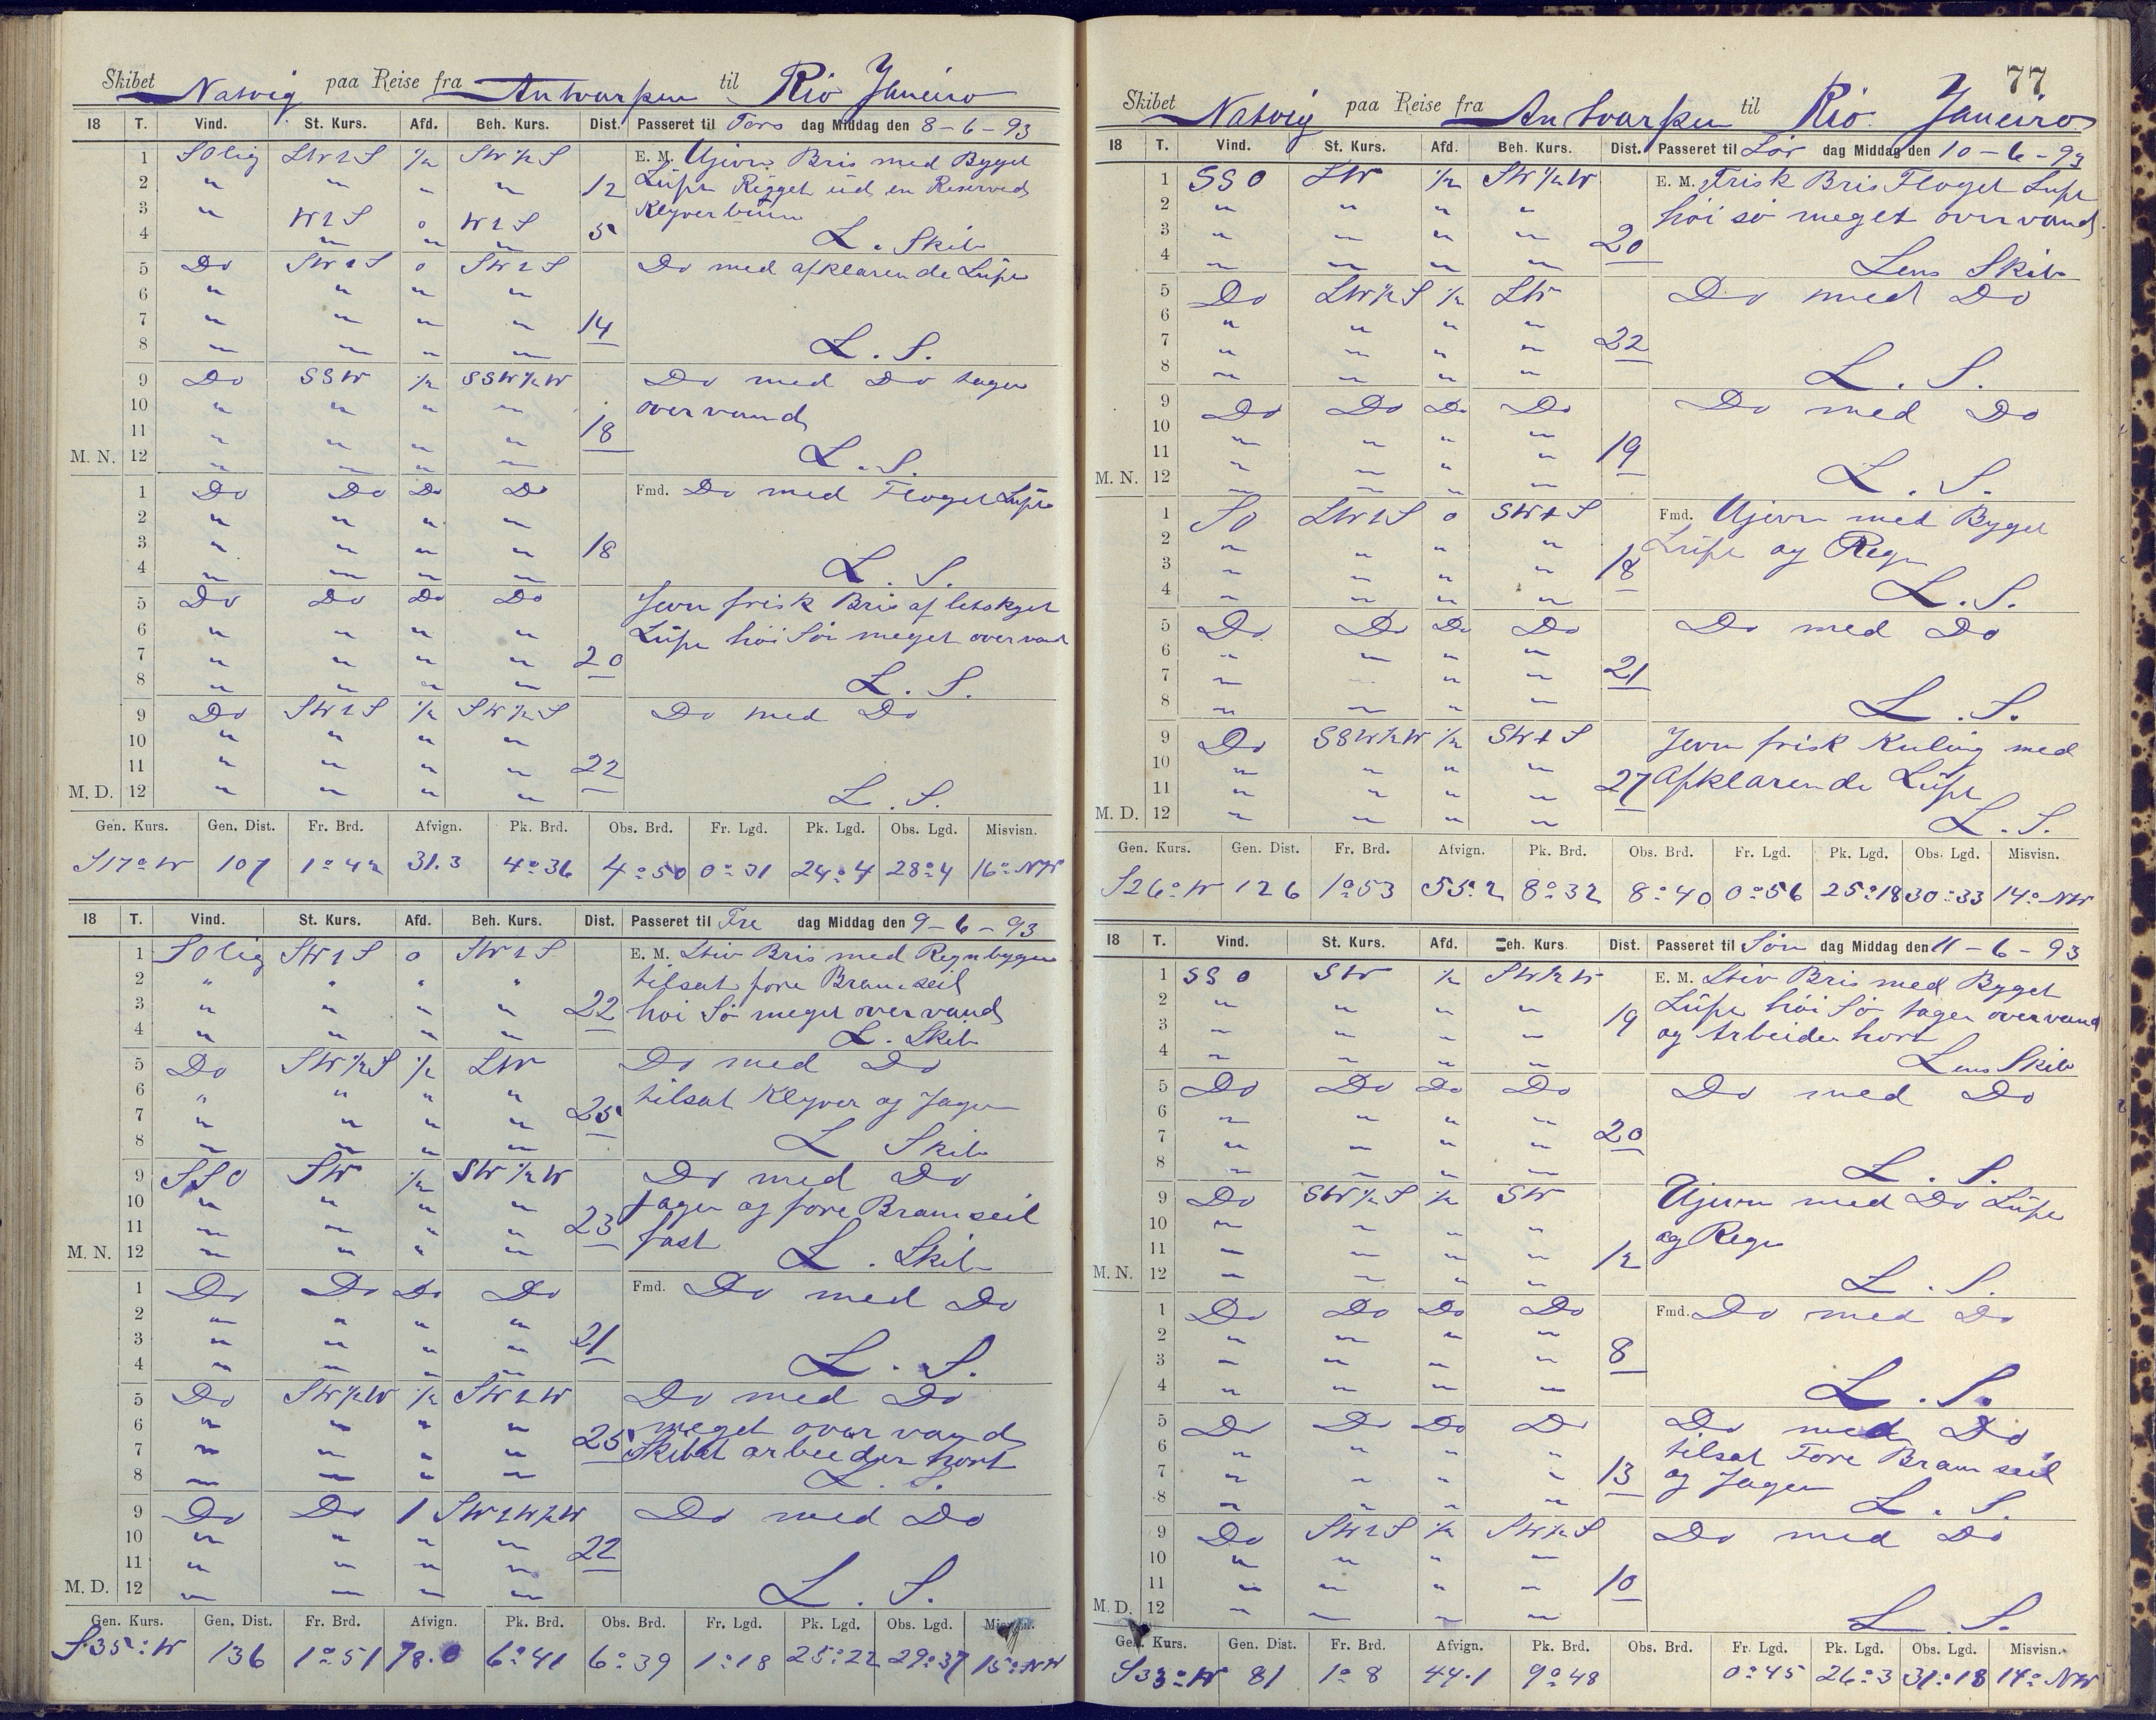 Skibet Natvig paa Reise fra Antwarpen til Rio Janeiro
18 T. Vind. St. Kurs. Afd. Beh. Kurs. Dist. Passeret til Tors dag Middag den 8-6-93
1 SOlig SW 1/2 SW½S E. M. Ujevn Bris med Byget
2 " " " " 12 Lüft Rigget ud en Reserved
3 " Klyverbom
4 " " " 5 L. Skib
5 Do o Do med afklarende Lüft
6 " " " "
7 " " " " 14
8 " " " " L. S.
9 Do SSW ½ SSW½W Do med Do tager
10 " " " " overvand
11 " " " " 18
M. N. 12 " " " " L. S.
1 Do Do Do Do Fmd. Do med Floget Lüft
2 " " " "
3 " " " " 18
4 " " " " L. S.
5 Do Do Do Do Jevn frisk Bris af letskyet
6 " " " " Lüft høi Sø meget overvand
7 " " " " 20
8 " " " " L. S.
9 Do ½ SW½S Do med Do
10 " " " "
11 " " " " 22
M. D. 12 " " " " L. S.
Gen. Kurs. Gen. Dist. Fr. Brd. Afvign. Pk. Brd. Obs. Brd. Fr. Lgd. Pk. Lgd. Obs. Lgd. Misvisn.
S17°W 107 1°42 31.3 4°36 4°50 0°31 24°4 28°4 16° NW
18 T. Vind. St. Kurs. Afd. Beh. Kurs. Dist. Passeret til Fre dag Middag den 9-6-93
1 SOlig o E. M. Stiv Bris med Regnbyger
2 " " " " tilsat fore Bramseil
3 " " " " 22 høi Sø meget overvand
4 " " " " L. Skib
5 Do SW½S ½ SW Do med Do
6 " " " " tilsat Klyver og Jager
7 " " " " 25
8 " " " " L Skib
9 SSO SW ½ SW½W Do med Do
10 " " " " Jager og fore Bramseil
11 " " " " 23 fast
M. N. 12 " " " " L. Skib
1 Do Do Do Do Fmd. Do med Do
2 " " " "
3 " " " " 21
4 " " " " L. S.
5 Do SW½W ½ Do med Do
6 " " " " meget over vand
7 " " " " 25 Skibet arbeider hort
8 " " " " L. S.
9 Do Do 1 Do med Do
10 " " " "
11 " " " " 22
M. D. 12 " " " " L. S.
Gen. Kurs. Gen. Dist. Fr. Brd. Afvign. Pk. Brd. Obs. Brd. Fr. Lgd. Pk. Lgd. Obs. Lgd. Misvisn.
S35°W 136 1°51 78.0 6°41 6°39 1°18 25°22 29°37 15° NW
77
Skibet Natvig paa Reise fra Antwarpen til Rio Janeiro
18 T. Vind. St. Kurs. Afd. Beh. Kurs. Dist. Passeret til Lør dag Middag den 10-6-93
1 SSO SW ½ SW½W E. M. Frisk Bris Floget Lüft
2 " " " " høi sø meget overvand
3 " " " " 20
4 " " " " Lens Skib
5 Do SW½S ½ SW Do med Do
6 " " " "
7 " " " " 22
8 " " " " L. S.
9 Do Do Do Do Do med Do
10 " " " "
11 " " " " 19
M. N. 12 " " " " L. S.
1 SO o Fmd. Ujevn med Byget
2 " " " " Lüft og Regn
3 " " " " 18
4 " " " " L. S.
5 Do Do Do Do Do med Do
6 " " " "
7 " " " 21
8 " " " " L. S.
9 Do SSW½W ½ Jevn frisk Kuling med
10 " " " " Afklarende Lüft
11 " " " " 27
M. D. 12 " " " " L. S.
Gen. Kurs. Gen. Dist. Fr. Brd. Afvign. Pk. Brd. Obs. Brd. Fr. Lgd. Pk. Lgd. Obs. Lgd. Misvisn.
S26°W 126 1°53 55.2 8°32 8°40 0°56 25°18 30°33 14° NW
18 T. Vind. St. Kurs. Afd. Beh. Kurs Dist. Passeret til Søn dag Middag den 11-6-93
1 SSO SW ½ SW½W E. M. Stiv Bris med Byget
2 " " " " Lüft høi Sø tager overvand
3 " " " " 19 og Arbeider hort
4 " " " " Lens Skib
5 Do Do Do Do Do med Do
6 " " " "
7 " " " " 20
8 " " " " L. S.
9 Do SW½S ½ SW Ujevn med Do Lüft
10 " " " " og Regn
11 " " " " 12
M. N. 12 " " " " L. S.
1 Do Do Do Do Fmd. Do med Do
2 " " " "
3 " " " " 8
4 " " " " L. S.
5 Do Do Do Do Do med Do
6 " " " " tilsat Fore Bram seil
7 " " " " 13 og Jager
8 " " " " L. S.
9 Do ½ SW½S Do med Do
10 " " " "
11 " " " " 10
M. D. 12 " " " " L. S.
Gen. Kurs. Gen. Dist. Fr. Brd. Afvign. Pk. Brd. Obs. Brd. Fr. Lgd. Pk. Lgd. Obs. Lgd. Misvisn.
S33°W 81 1°8 44.1 9°48 0°45 26°3 31°18 14° NW